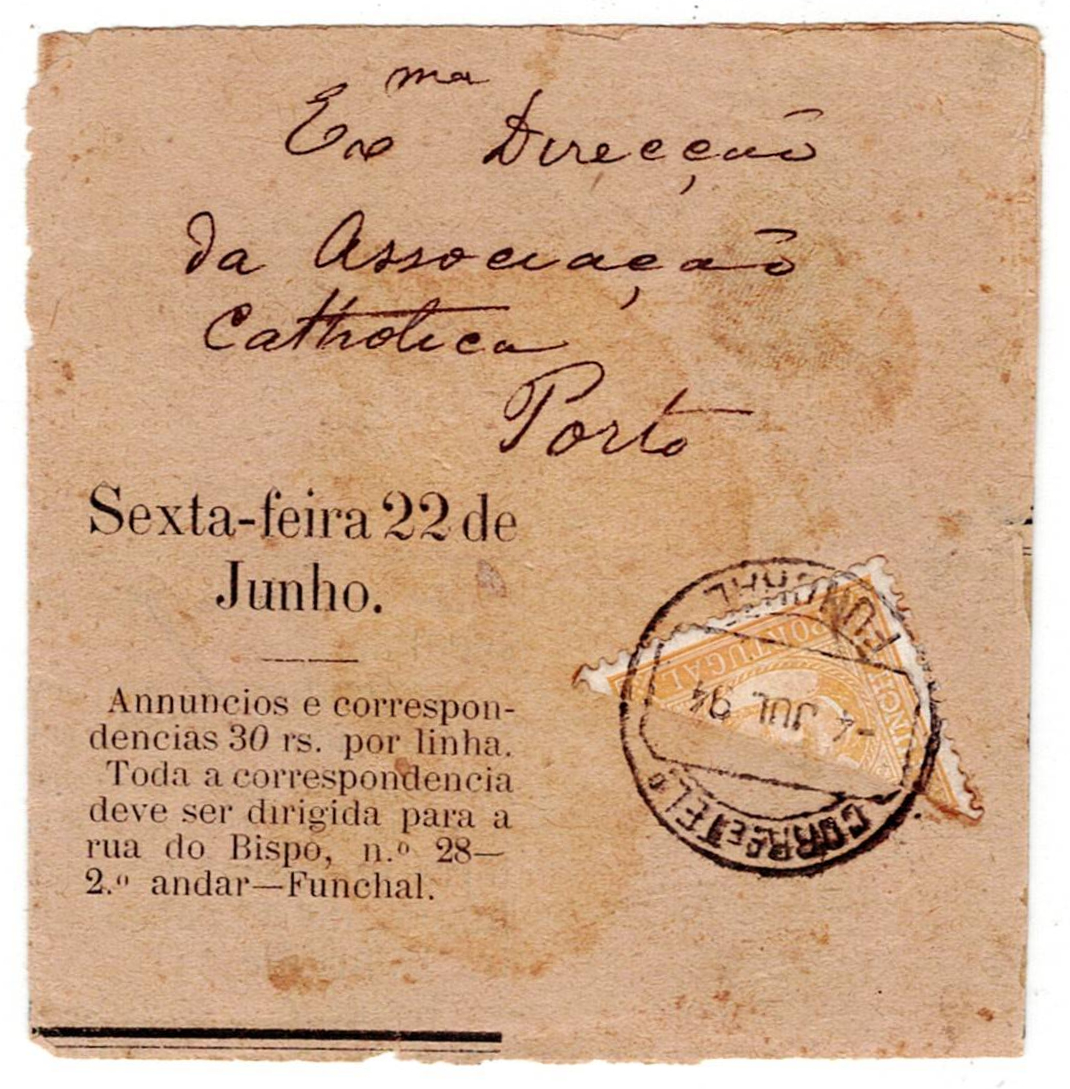 Exma Direcção
da Associação
Catholica
Porto
Sexta-feira 22 de
Junho.
Annuncios e correspon-
dencias 30 rs. por linha.
Toda a correspondencia
deve ser dirigida para a
rua do Bispo, n.º 28—
2.º andar—Funchal.
FUNCHAL
PORTUGAL
FUNCHAL
-4 JUL 94
CORRº E TELº